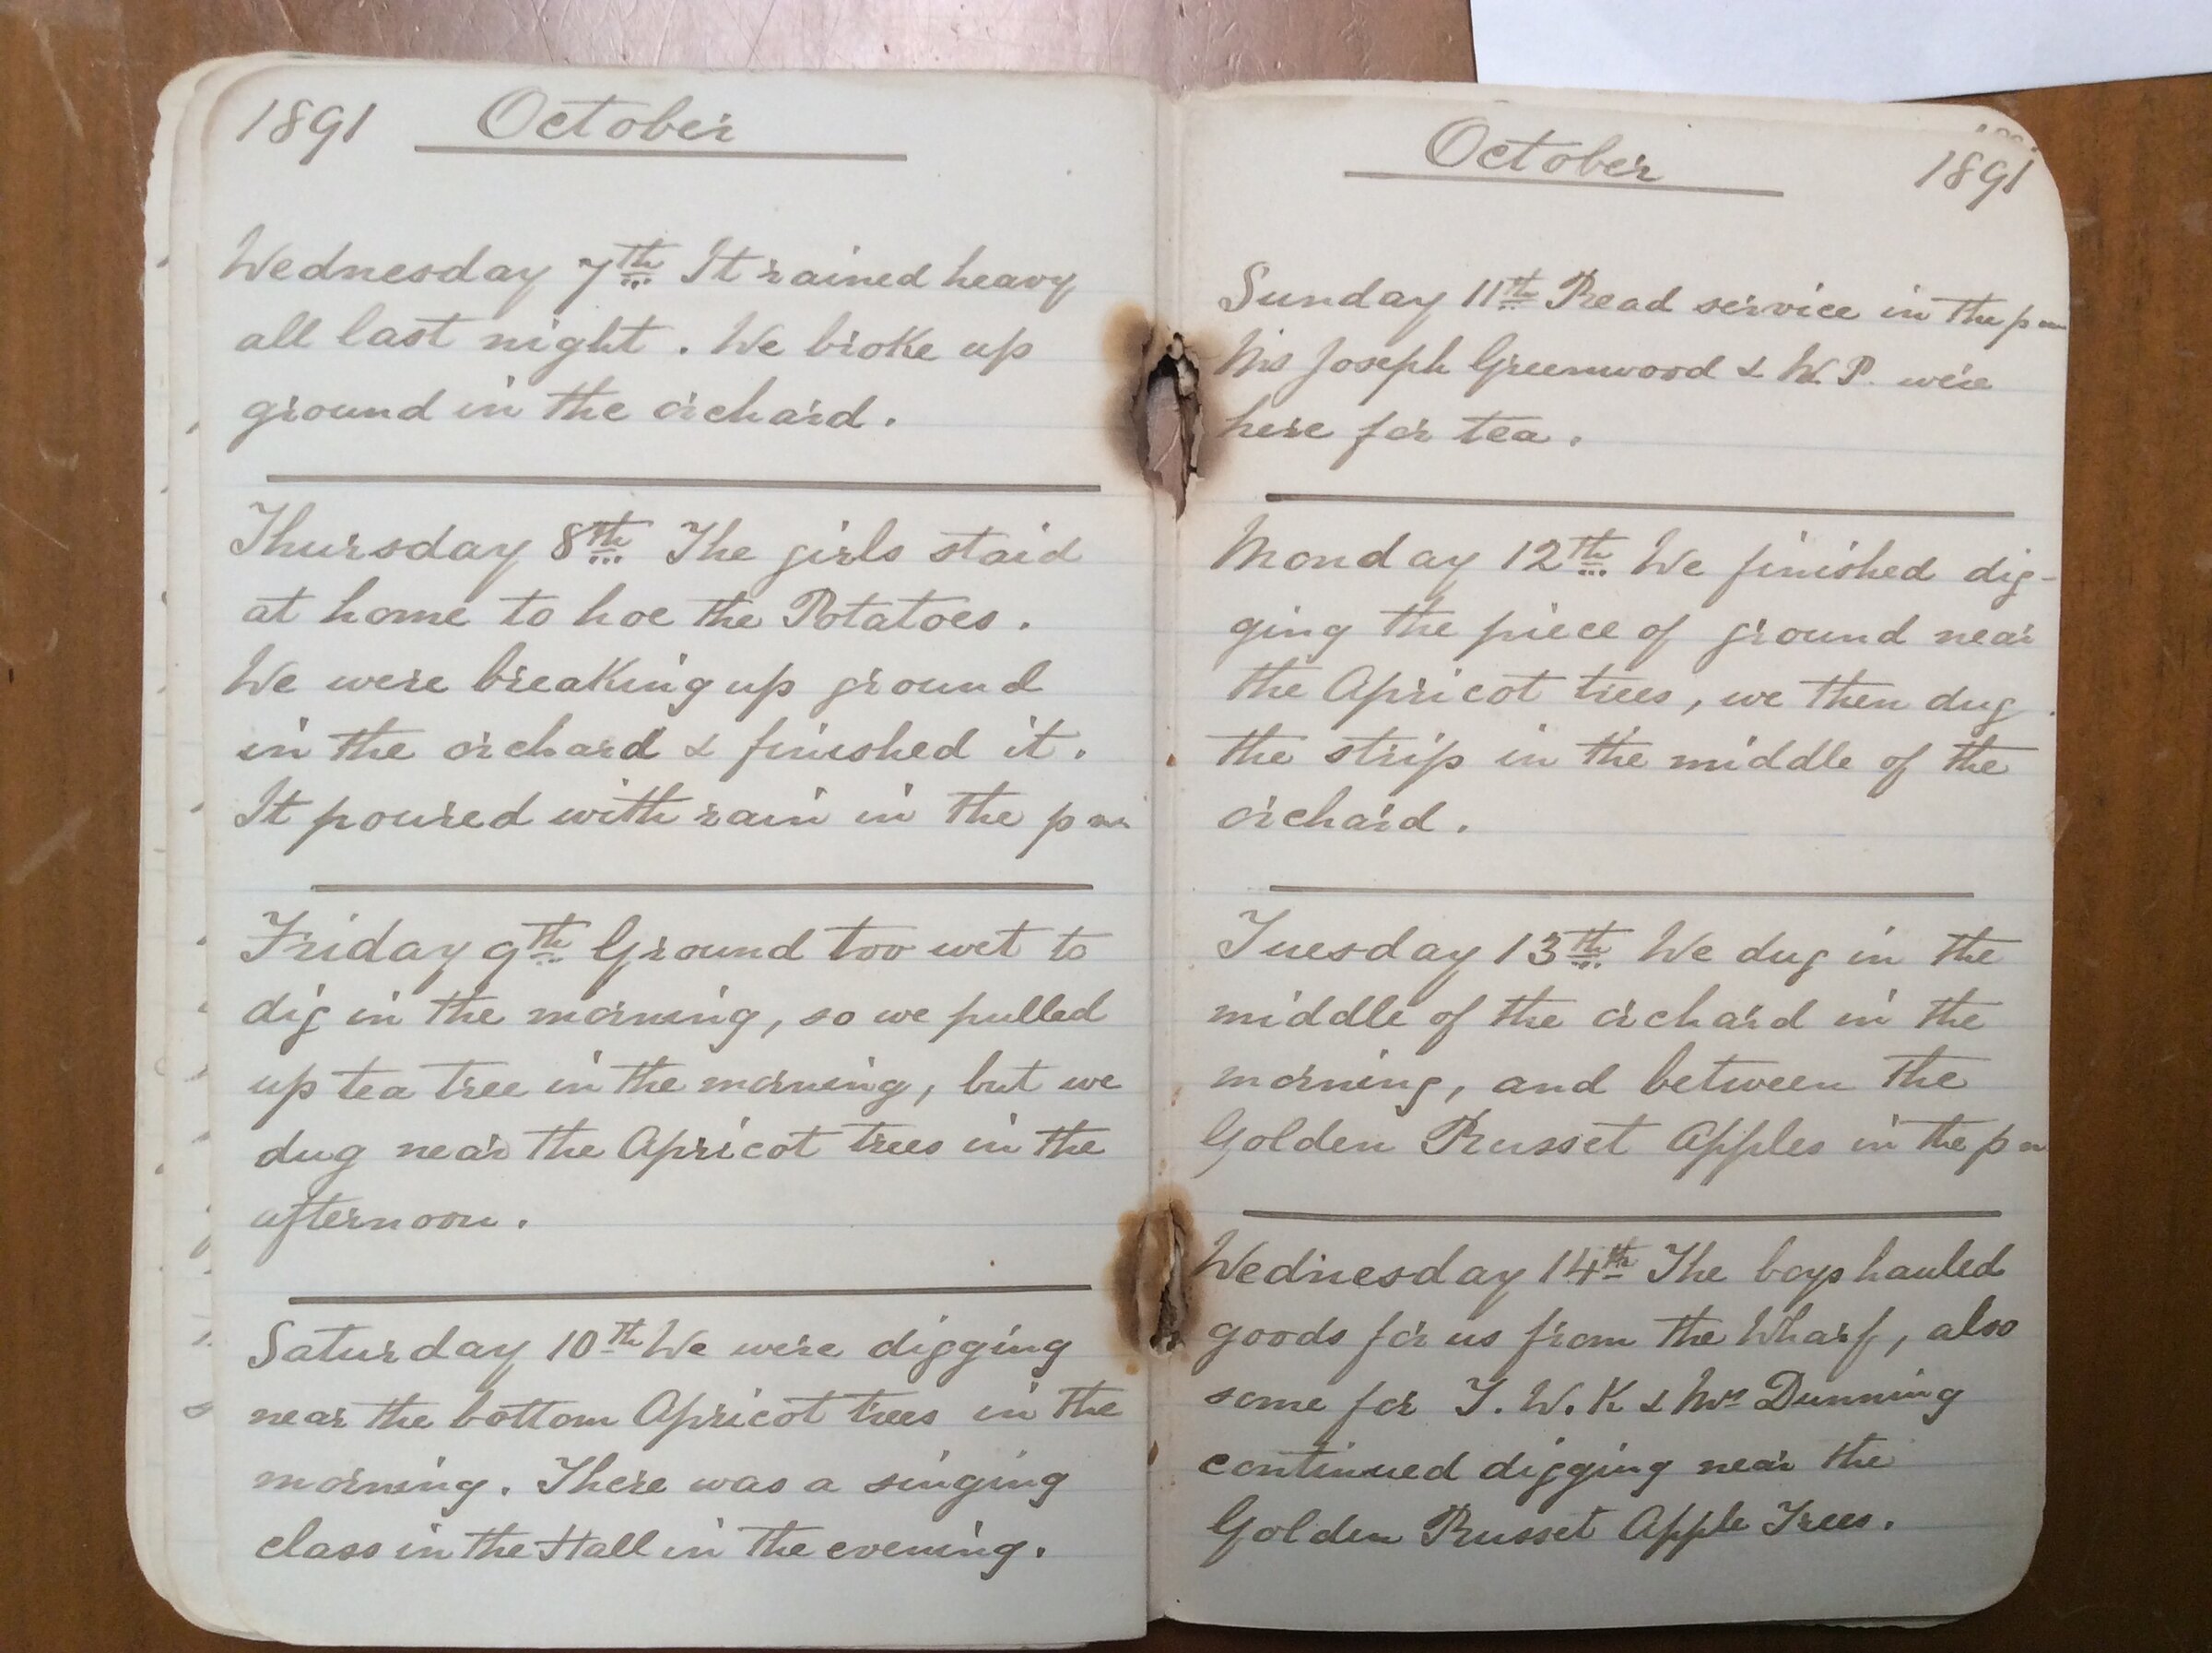 1891 October
Wednesday 7th It rained heavy
all last night. We broke up
ground in the orchard.
Thursday 8th The girls staid
at home to hoe the Potatoes.
We were breaking up ground
in the orchard & finished it.
It poured with rain in the pm
Friday 9th Ground too wet to
dig in the morning, so we pulled
up tea tree in the morning, but we
dug near the Apricot trees in the
afternoon.
Saturday 10th We were digging
near the bottom Apricot trees in the
morning. There was a singing
class in the Hall in the evening.
October 1891
Sunday 11th Read service in the pm
Joseph Greenwood & W.P. were
here for tea.
Monday 12th We finished dig-
ging the piece of ground near
the Apricot trees, we then dug
the strip in the middle of the
orchard.
Tuesday 13th We dug in the
middle of the orchard in the
morning, and between the
Golden Russet Apples in the pm
Wednesday 14th The boys hauled
goods for us from the Wharf, also
some for T. W. K & Mrs Dunning
continued digging near the
Golden Russet Apple Trees.